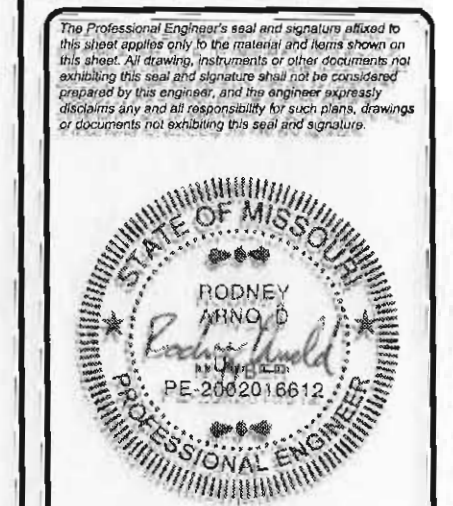 The Professional Engineer's seal and signature affixed to
this sheet applies only to the material and items shown on
this sheet. All drawing, instruments or other documents not
exhibiting this seal and signature shall not be considered
prepared by this engineer, and the engineer expressly
disclaims any and all responsibility for such plans, drawings
or documents not exhibiting this seal and signature.
STATE OF MISSOURI
RODNEY
ARNO D
Rodney Arnold
PE-2002016612
PROFESSIONAL ENGINEER